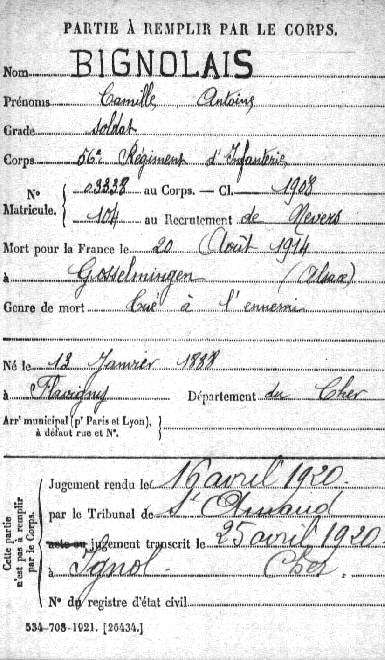 PARTIE À REMPLIR PAR LE CORPS.
Nom BIGNOLAIS
Prénoms Camille Antoine
Grade soldat
Corps 56e Régiment d'Infanterie
N° Matricule. { 03328 au Corps. — Cl. 1908
104 au Recrutement de Nevers
Mort pour la France le 20 Août 1914
à Gosselmingen (Alsace)
Genre de mort tué à l'ennemi
Né le 13 Janvier 1888
à Flavigny Département du Cher
Arr^t municipal (p^r Paris et Lyon), à défaut rue et N°. {
Cette partie n'est pas à remplir par le Corps.
Jugement rendu le 16 avril 1920.
par le Tribunal de St Amand
acte ou jugement transcrit le 25 avril 1920
à Ignol Cher.
N° du registre d'état civil
534-708-1921. [26434.]